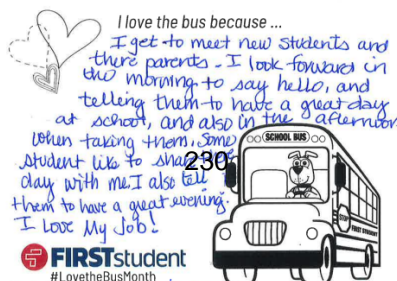 I love the bus because ...
I get to meet new students and
there parents. I look forward in
the morning to say hello, and
telling them to have a great day
at school, and also in the afternoon
when taking them, some
student like to sha
230
day with me. I also tell
them to have a great evening.
I Love My Job!
SCHOOL BUS
STOP
FIRST STUDENT
FIRSTstudent
#LovetheBusMonth